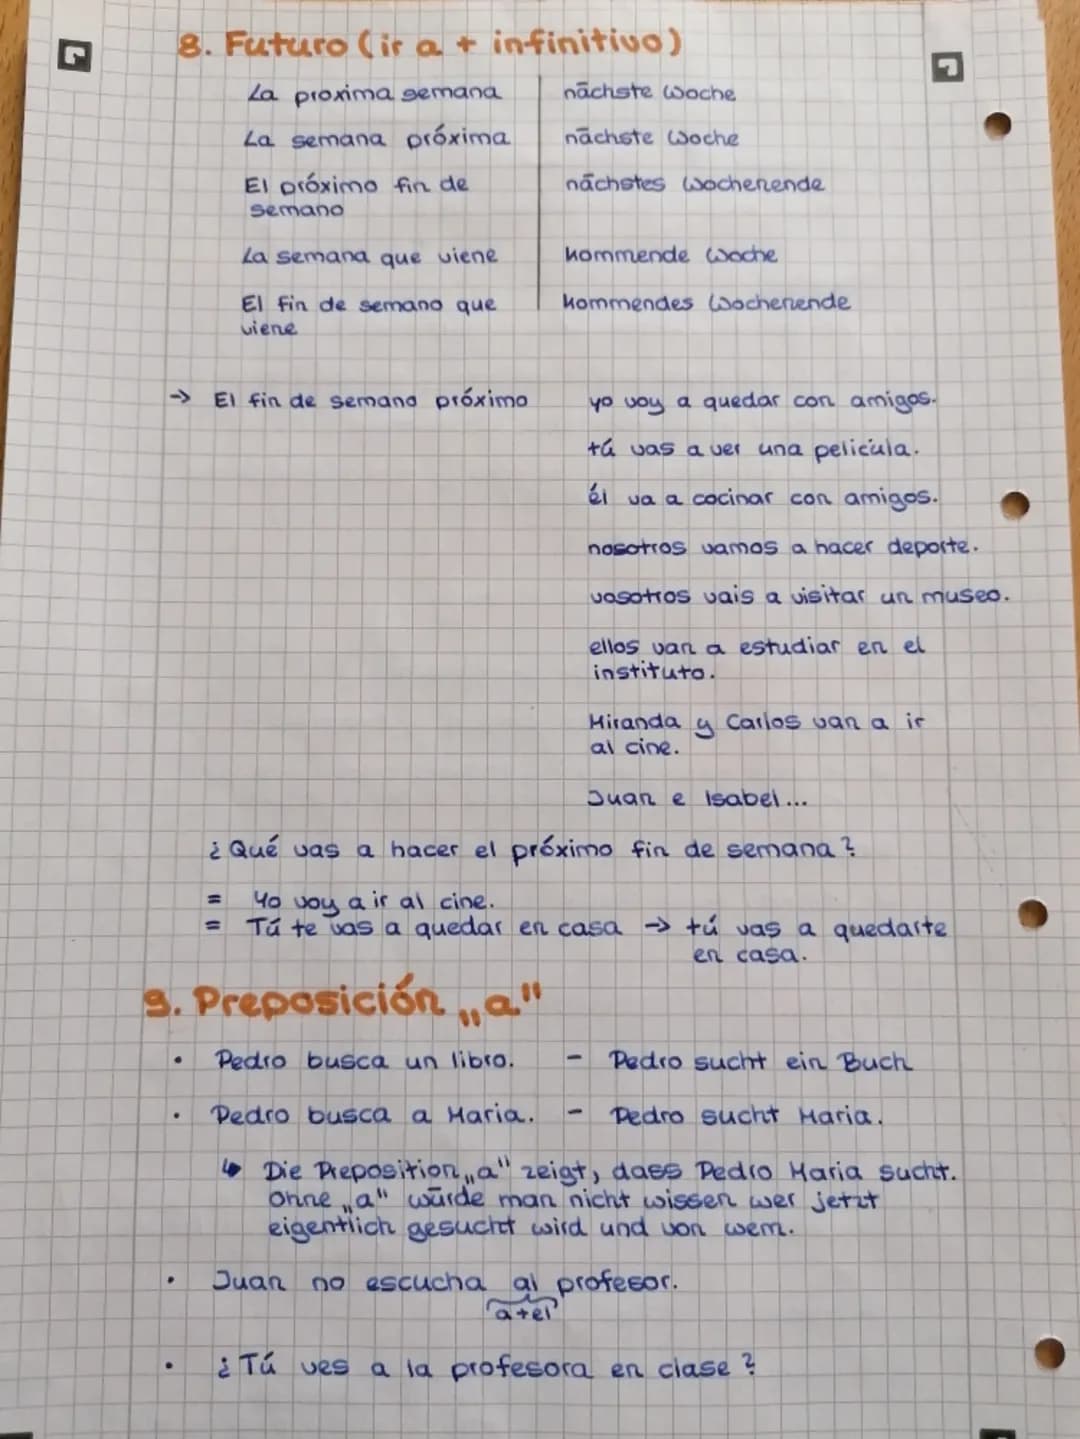 8. Futuro (ir a + infinitivo)
La proxima semana nächste Woche
La semana próxima nächste Woche
El próximo fin de nächstes Wochenende
semana
La semana que viene kommende Woche
El fin de semana que kommendes Wochenende
viene
→ El fin de semana próximo yo voy a quedar con amigos.
tú vas a ver una película.
él va a cocinar con amigos.
nosotros vamos a hacer deporte.
vosotros vais a visitar un museo.
ellos van a estudiar en el
instituto.
Miranda y Carlos van a ir
al cine.
Juan e Isabel...
¿Qué vas a hacer el próximo fin de semana?
= Yo voy a ir al cine.
= Tú te vas a quedar en casa → tú vas a quedarte
en casa.
9. Preposición „a"
• Pedro busca un libro. - Pedro sucht ein Buch
• Pedro busca a Maria. - Pedro sucht Maria.
↳ Die Preposition „a" zeigt, dass Pedro Maria sucht.
Ohne „a" würde man nicht wissen wer jetzt
eigentlich gesucht wird und von wem.
• Juan no escucha al profesor.
a+el
• ¿Tú ves a la profesora en clase?